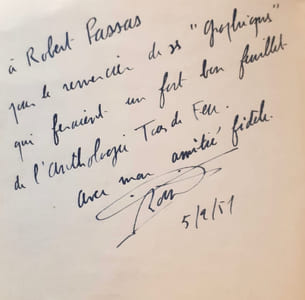 à Robert Passas
pour le remercier de ses "Graphiques"
qui feraient un fort bon feuillet
de l'anthologie Tas de Feu.
avec mon amitié fidèle
5/9/51